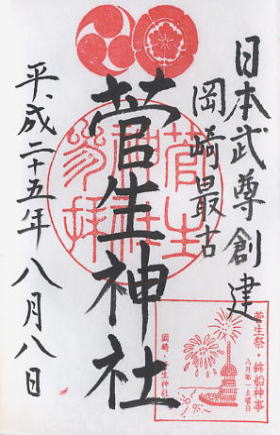 日本武尊創建
岡崎最古
菅生神社
菅生神社参拝
平成二十五年八月八日
菅生祭・鉾船神事
八月第一土曜日
岡崎・菅生神社